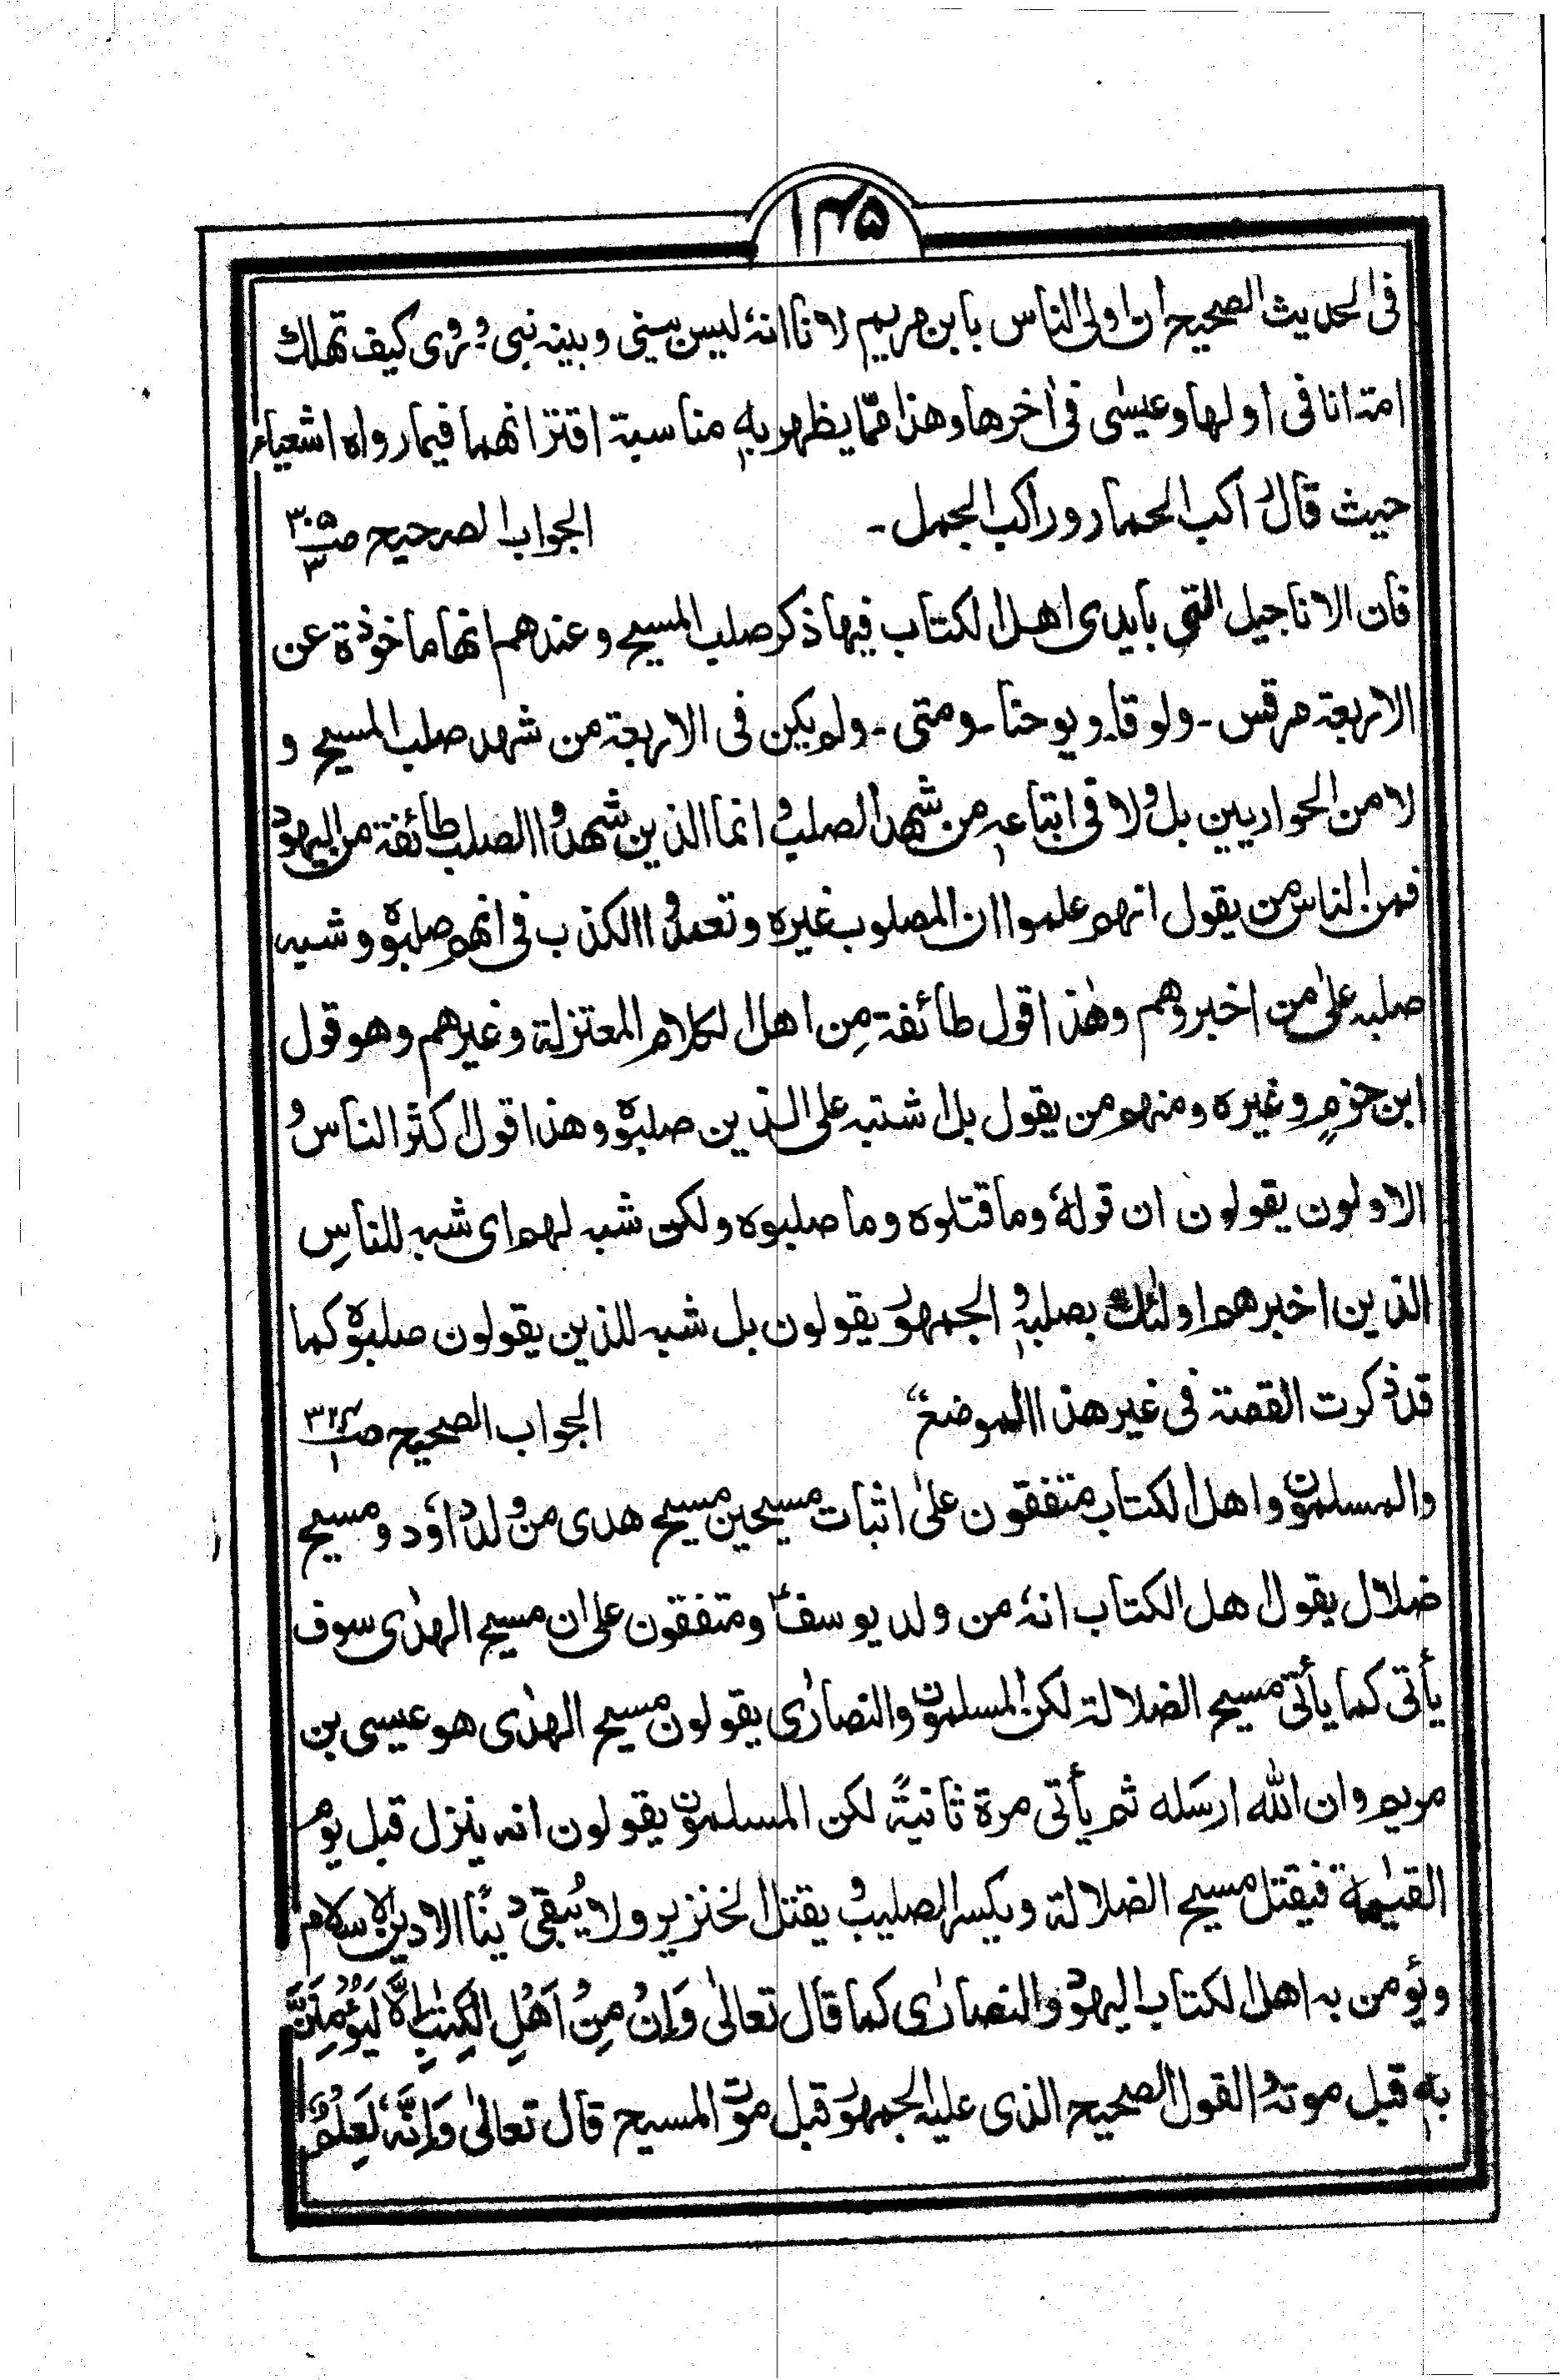 ۱۴۵
فی الحدیث الصحیح ان اولی الناس بابن مریم لانا انہ لیس بینی و بینہ نبی و روی کیف تھلک
امۃ انا فی اولھا و عیسٰی فی اٰخرھا وھذا ممّا یظھر بہٖ مناسبۃ اقترانھما فیما رواہ اشعیاء
حیث قال راکب الحمار و راکب الجمل۔ الجواب الصحیح ص۳۰۵/۳
فان الاناجیل التی بایدی اھل الکتاب فیھا ذکر صلب المسیح و عندھم انھا ماخوذۃ عن
الاربعۃ مرقس۔ ولوقا۔ و یوحنا۔ ومتی۔ ولم یکن فی الاربعۃ من شھد صلب المسیح و
لا من الحواریین بل ولا فی اتباعہٖ من شھد الصلب و انما الذین شھدوا الصلب طائفۃ من الیھود
فمن الناس من یقول انھم علموا ان المصلوب غیرہ و تعمدوا الکذب فی انھم صلبوہ و شبہ
صلبہ علٰی من اخبروھم وھٰذا قول طائفۃ مِن اھل الکلام المعتزلۃ و غیرھم وھو قول
ابن حزمٍ و غیرہ و منھم من یقول بل اشتبہ علی الذین صلبوہ و ھذا قول اکثر الناس و
الاولون یقولون ان قولہٗ وما قتلوہ وما صلبوہ ولکن شبہ لھم ای شبہ للناسِ
الذین اخبرھم اولٰئک بصلبہٖ و الجمھور یقولون بل شبہ للذین یقولون صلبوہ کما
قد ذکرت القصۃ فی غیر ھذا الموضع“ الجواب الصحیح ص۳۲۴/۱
والمسلمون و اھل الکتاب متفقون علٰی اثبات مسیحین مسیح ھدی من ولد داؤد و مسیح
ضلال یقول اھل الکتاب انہٗ من ولد یوسفؑ و متفقون علی ان مسیح الھدٰی سوف
یأتی کما یأتی مسیح الضلالۃ لکن المسلمون والنصارٰی یقولون مسیح الھدٰی ھو عیسی بن
مریم و ان اللہ ارسَلہ ثم یأتی مرۃ ثانیۃً لکن المسلمون یقولون انہ ینزل قبل یوم
القیٰمۃ فیقتل مسیح الضلالۃ و یکسر الصلیب و یقتل الخنزیر ولا یُبقی دینًا الا دین الاسلام
و یؤمن بہ اھل الکتاب الیھود والنصارٰی کما قال تعالٰی وَاِنْ مِنْ اَھْلِ الْکِتٰبِ اِلَّا لَیُؤْمِنَنَّ
بہٖ قبل موتہٖ و القول الصحیح الذی علیہ الجمھور قبل موت المسیح قال تعالٰی وَاِنَّہٗ لَعِلْمٌ